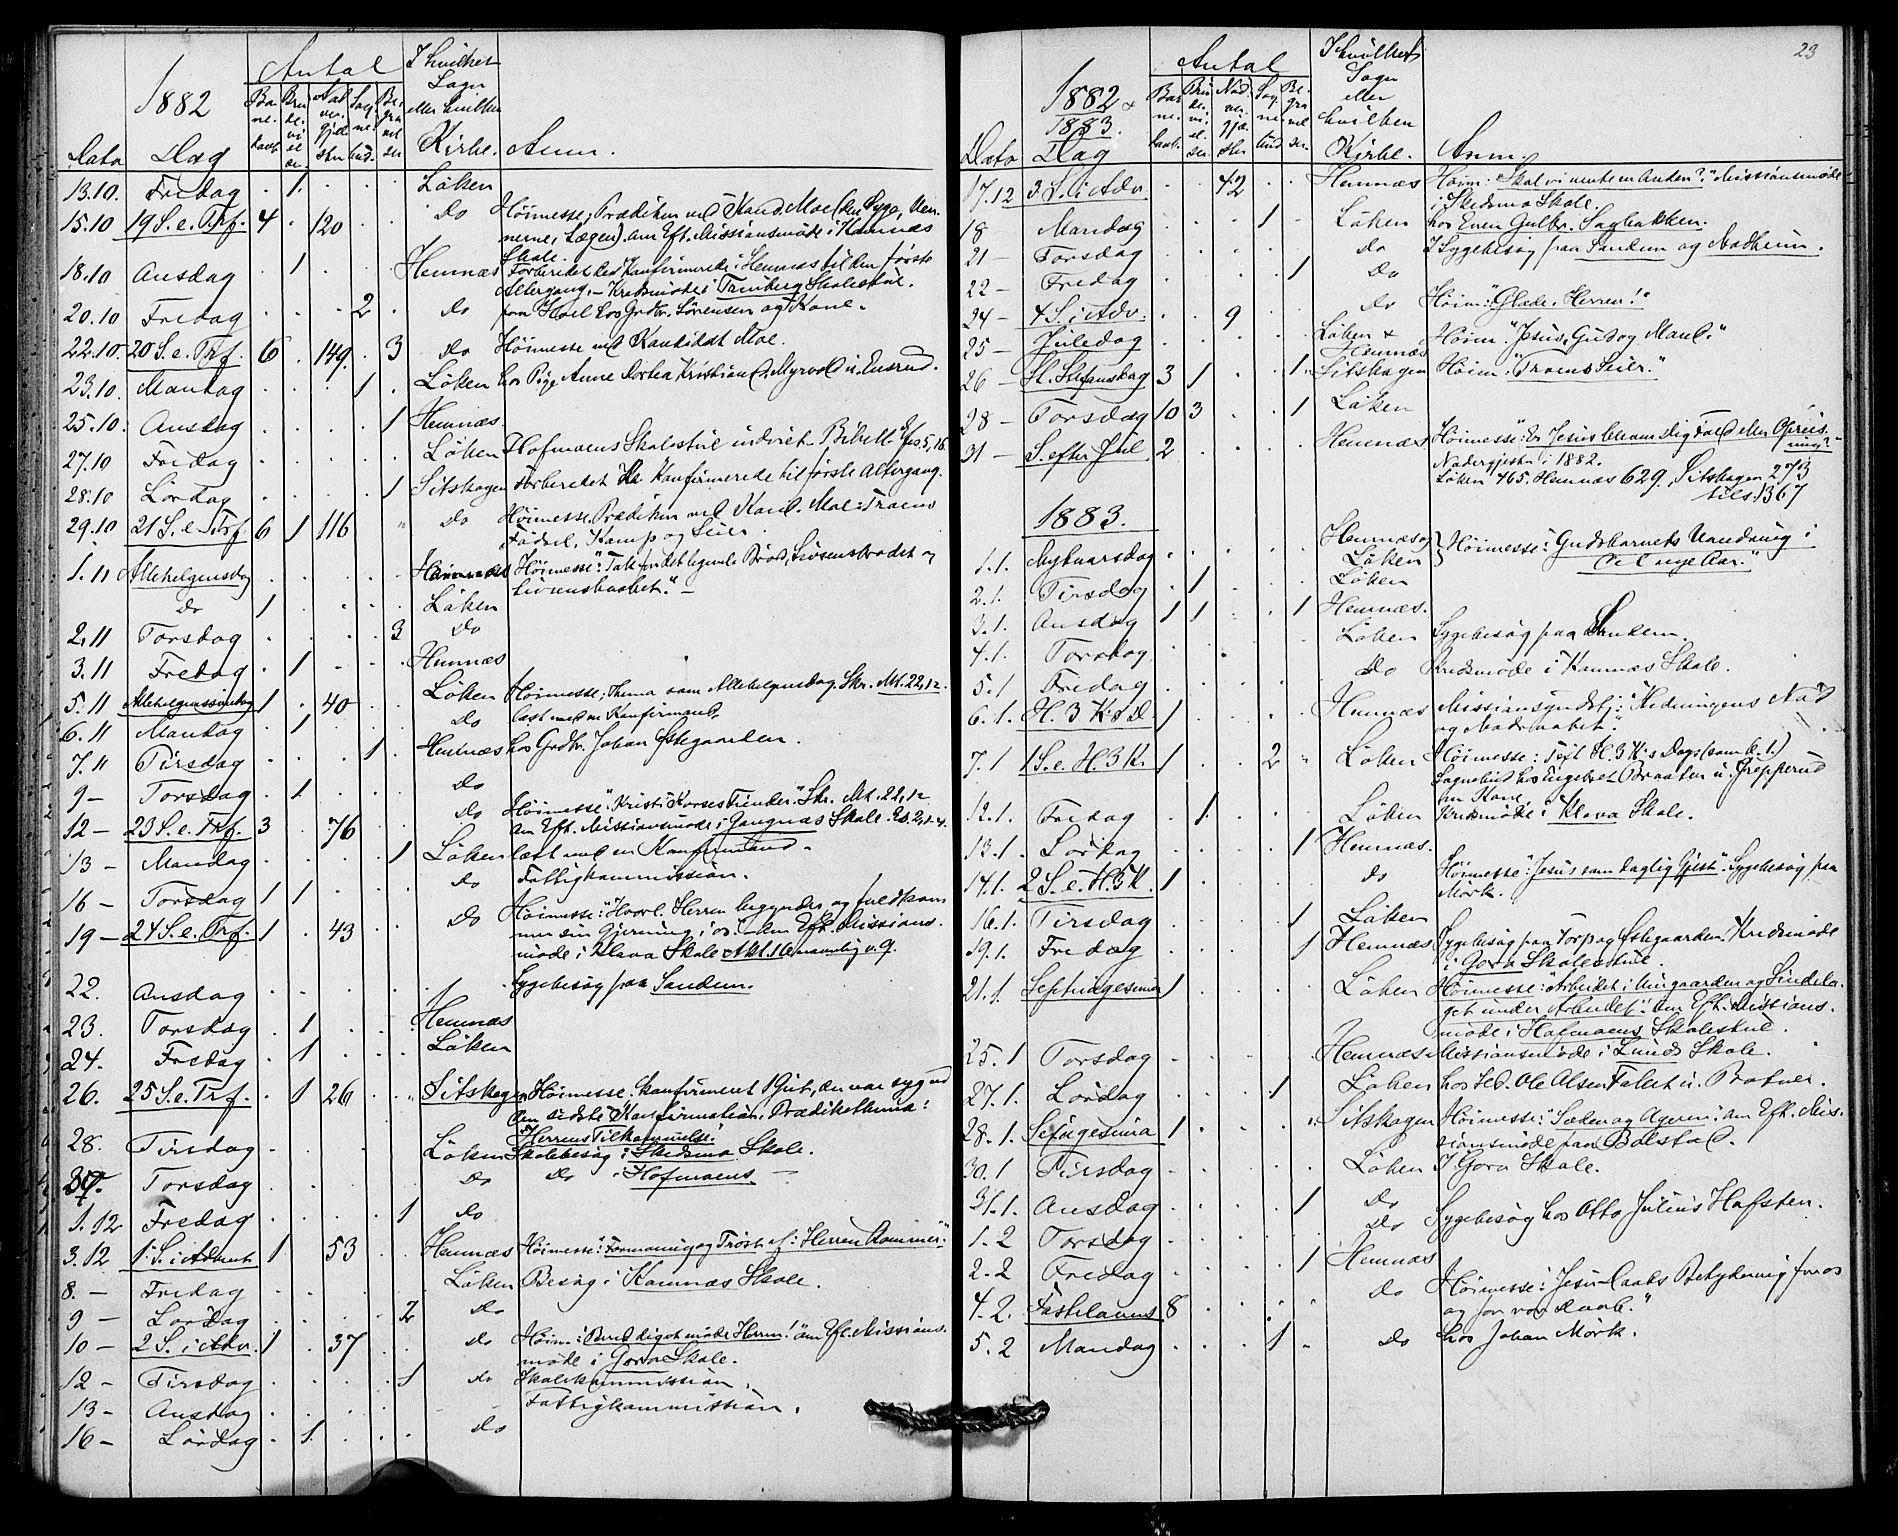 1882
Antal
I hvilket
Sogn
eller hvilken
Kirke.
Dato Dag Anm.
13.10. Fredag . 1. . . . Løken
15.10 19 S. e. Trf. 4 . 120 . . do Høimesse, Prædiken ved Kand. Moe (den Syge, Ven-
nerne, Lægen). Om Eft. Missionsmøde i Kamnæs
Skole.
18.10 Onsdag . 1 . . . Hemnæs Forberedet ved Konfirmerede i Hemnæs til den første
Altergang. – Kredsmøde i Skolestue.
20.10 Fredag . . . 2 . do paa Hoel hos Grdbr. Sørensen og Kone.
22.10. 20 S. e. Trf. 6 . 149. . 3 do Høimesse ved Kandidat Moe.
23.10. Mandag . . . 1 . Løken hos Pige Anne Dorthea Kristiansd. Myrvold u. Ensrud.
25.10. Onsdag . . . . 1 Hemnæs
27.10 Fredag . . . . . Løken Hofmoens Skolestue indviet. Bibell. Efes 5, 18.
28.10 Lördag . . . . 1 Sitskogen Forberedet Konfirmerede til første Altergang.
29.10 21 S. e. Trf. 6 1 116 " do Høimesse. Prædiken ved Kand. Moe: Troens
Fødsel, Kamp og Seier
1.11 Allehelgensdag . . . . . Hemnæs Høimesse: "Tak for det legemle Brød, Livsens Brødet og
Livsenshaabet." –
do 1 . . . . Løken
2.11 Torsdag . . . . 3 do
3.11 Fredag . 1 . . . Hemnæs
5.11 Allehelgenssøndag 1 . 40 . . Løken Høimesse, Thema som Allehelgensdag. Skr. Mt. 22,1-
6.11 Mandag . 1 . . . do læst med en Konfirmand.
7.11 Tirsdag . . . 1 . Hemnæs hos Grdbr. Johan Østegaarden.
9 – Torsdag . 1 . . . do
12 – 23 S. e. Trf. 3 . 76 . . do Høimesse "Kristi Korses Fiender." Skr. Mt. 22,1-
Om Eft. Missionsmøde i Gangnæs Skole. Es. 2, 1-4.
13 – Mandag . . . . 1 Løken læst med en Konfirmand.
16 – Torsdag 1 1 . . . do Fattigkommission.
19 – 24 S. e. Trf. 1 . 43 . . do Høimesse: "Hvorl. Herren begynder og fuldkom-
mer sin Gjerning i os. Om Eft. Missions-
møde i Klova Skole. Akt. 16 navnlig v. 9.
22. Onsdag . . . . . Sygebesøg paa Sandem.
23. Torsdag . 1 . . . Hemnæs
24. Fredag . 1 . . . Løken
26. 25 S. e. Trf. . 1 26 . . Sitskogen Høimesse. Konfirmeret 1 Gut, der var syg ved
den sidste Konfirmation. Prædikethema:
"Herrens Tilkommelse."
28. Tirsdag . . . . . Løken Skolebesøg i Skidsmo Skole.
30. Torsdag . . . . do do i Hofmoens –
1.12 Fredag . . . . 1 do
3.12 1. S. i Advent 1 . 53 . . Hemnæs Høimesse: "Formaning og Trøst af: Herren kommer"
8. – Fredag . . . . . Løken Besøg i Kamnæs Skole.
9 – Lördag . . . . 2 do
10 – 2 S. i Adv. 1 . 37 . . do Høim: Bered dig at møde Herren! Om Eft. Missions-
møde i Gora Skole.
12 – Tirsdag . . . . 1 do Skolekommission.
13 – Onsdag . . . . . Fattigkommission.
16 – Lördag . 1. . . . do
23
1882 &
1883.
Antal
I hvilket
Sogn
eller
hvilken
Kirke.
Dato Dag Anm.
17.12 3 S. i Adv. . . 42 . . Hemnæs Høim: "Skal vi vente en Anden?" Missionsmøde
i Skidsmo Skole.
18 Mandag . . . 1 . Løken hos Even Gulbr. Sagbakken.
21 – Torsdag . . . . . do I Sygebesøg paa Sandem og Aadheim.
22 – Fredag . . . . 1 do
24 – 4 S. i Adv. . . 9 . . do Høim: "Glæde i Herren!"
25 – Juledag . . . . . Løken & Hemnæs Høim: "Jesus, Gud og Mand."
26 – St. Stefansdag 3 1 . . 1. Sitskogen Høim. "Troens Seier."
28 – Torsdag 10 3 . . 1 Løken
31 – S. efter Jul 2 . . . . Hemnæs Høimesse: Er Jesus bleven dig Fald eller Opreis-
ning?
Nadvergjester i 1882.
Løken 465. Hemnæs 629. Sitskogen 273
tils. 1367
1883.
1.1. Nytaarsdag . . . . . Hemnæs og Løken Høimesse: Gudsbarnets Vandring i
Det nye Aar."
2.1. Tirsdag . 1 . . . Løken
3.1. Onsdag 1 1 . . 1 Hemnæs.
4.1. Torsdag . . . . . Løken Sygebesøg paa Sandem.
5.1 Fredag . . . . . do Kredsmøde i Kamnæs Skole.
6.1. H. 3 K. D. 1 . . . . Hemnæs Missionsgudstj: "Hedningens Nød
og Nødraabet".
7.1 1 S. e. H. 3 K. 1 . . 2 " Løken Høimesse: Text H. 3 K.s Dags (som 6. 1.)
Sognebud hos Engebret Braaten u. Grepperud
og Kone.
12.1. Fredag . 1. . . . Løken Kredsmøde i Klova Skole.
13.1. Lördag . . . . 1 Hemnæs.
14.1. 2 S. e. H. 3 K. 1 . . . . do Høimesse: "Jesus som daglig Gjest". Sygebesøg paa
Mörk.
16.1. Tirsdag . . . . 1 Løken
19.1. Fredag . . . . 1 Hemnæs Sygebesøg paa Torp og Østegaarden. Kredsmøde
i Gora Skolestue.
21.1. Septuagesima 1 . . . . Løken Høimesse: "Arbeidet i Vingaarden og Sindela-
get under Arbeidet". Om Eft. Missions-
møde i Hofmoens Skolestue.
25.1 Torsdag . . . . . Hemnæs Missionsmøde i Lunds Skole.
27.1. Lördag . . . 1 . Løken hos Ole Olsen Falet u. Botner.
28.1. Sexagesima 1 . . . " Sitskogen Høimesse: "Sæden og Ageren". Om Eft. Mis-
sionsmøde paa Bolstad.
30.1 Tirsdag . . . . . Løken I Gora Skole.
31.1. Onsdag . . . . 1 do
1.2 Torsdag . . . . . do Sygebesøg hos Otto Julius Hafsten.
2.2 Fredag . . . . 1 Hemnæs
4.2. Fastelavns 8 . . . . do Høimesse: "Jesu Daabs Betydning for os
og for vor Daab."
5.2 Mandag . . . 1 . do hos Johan Mörk.